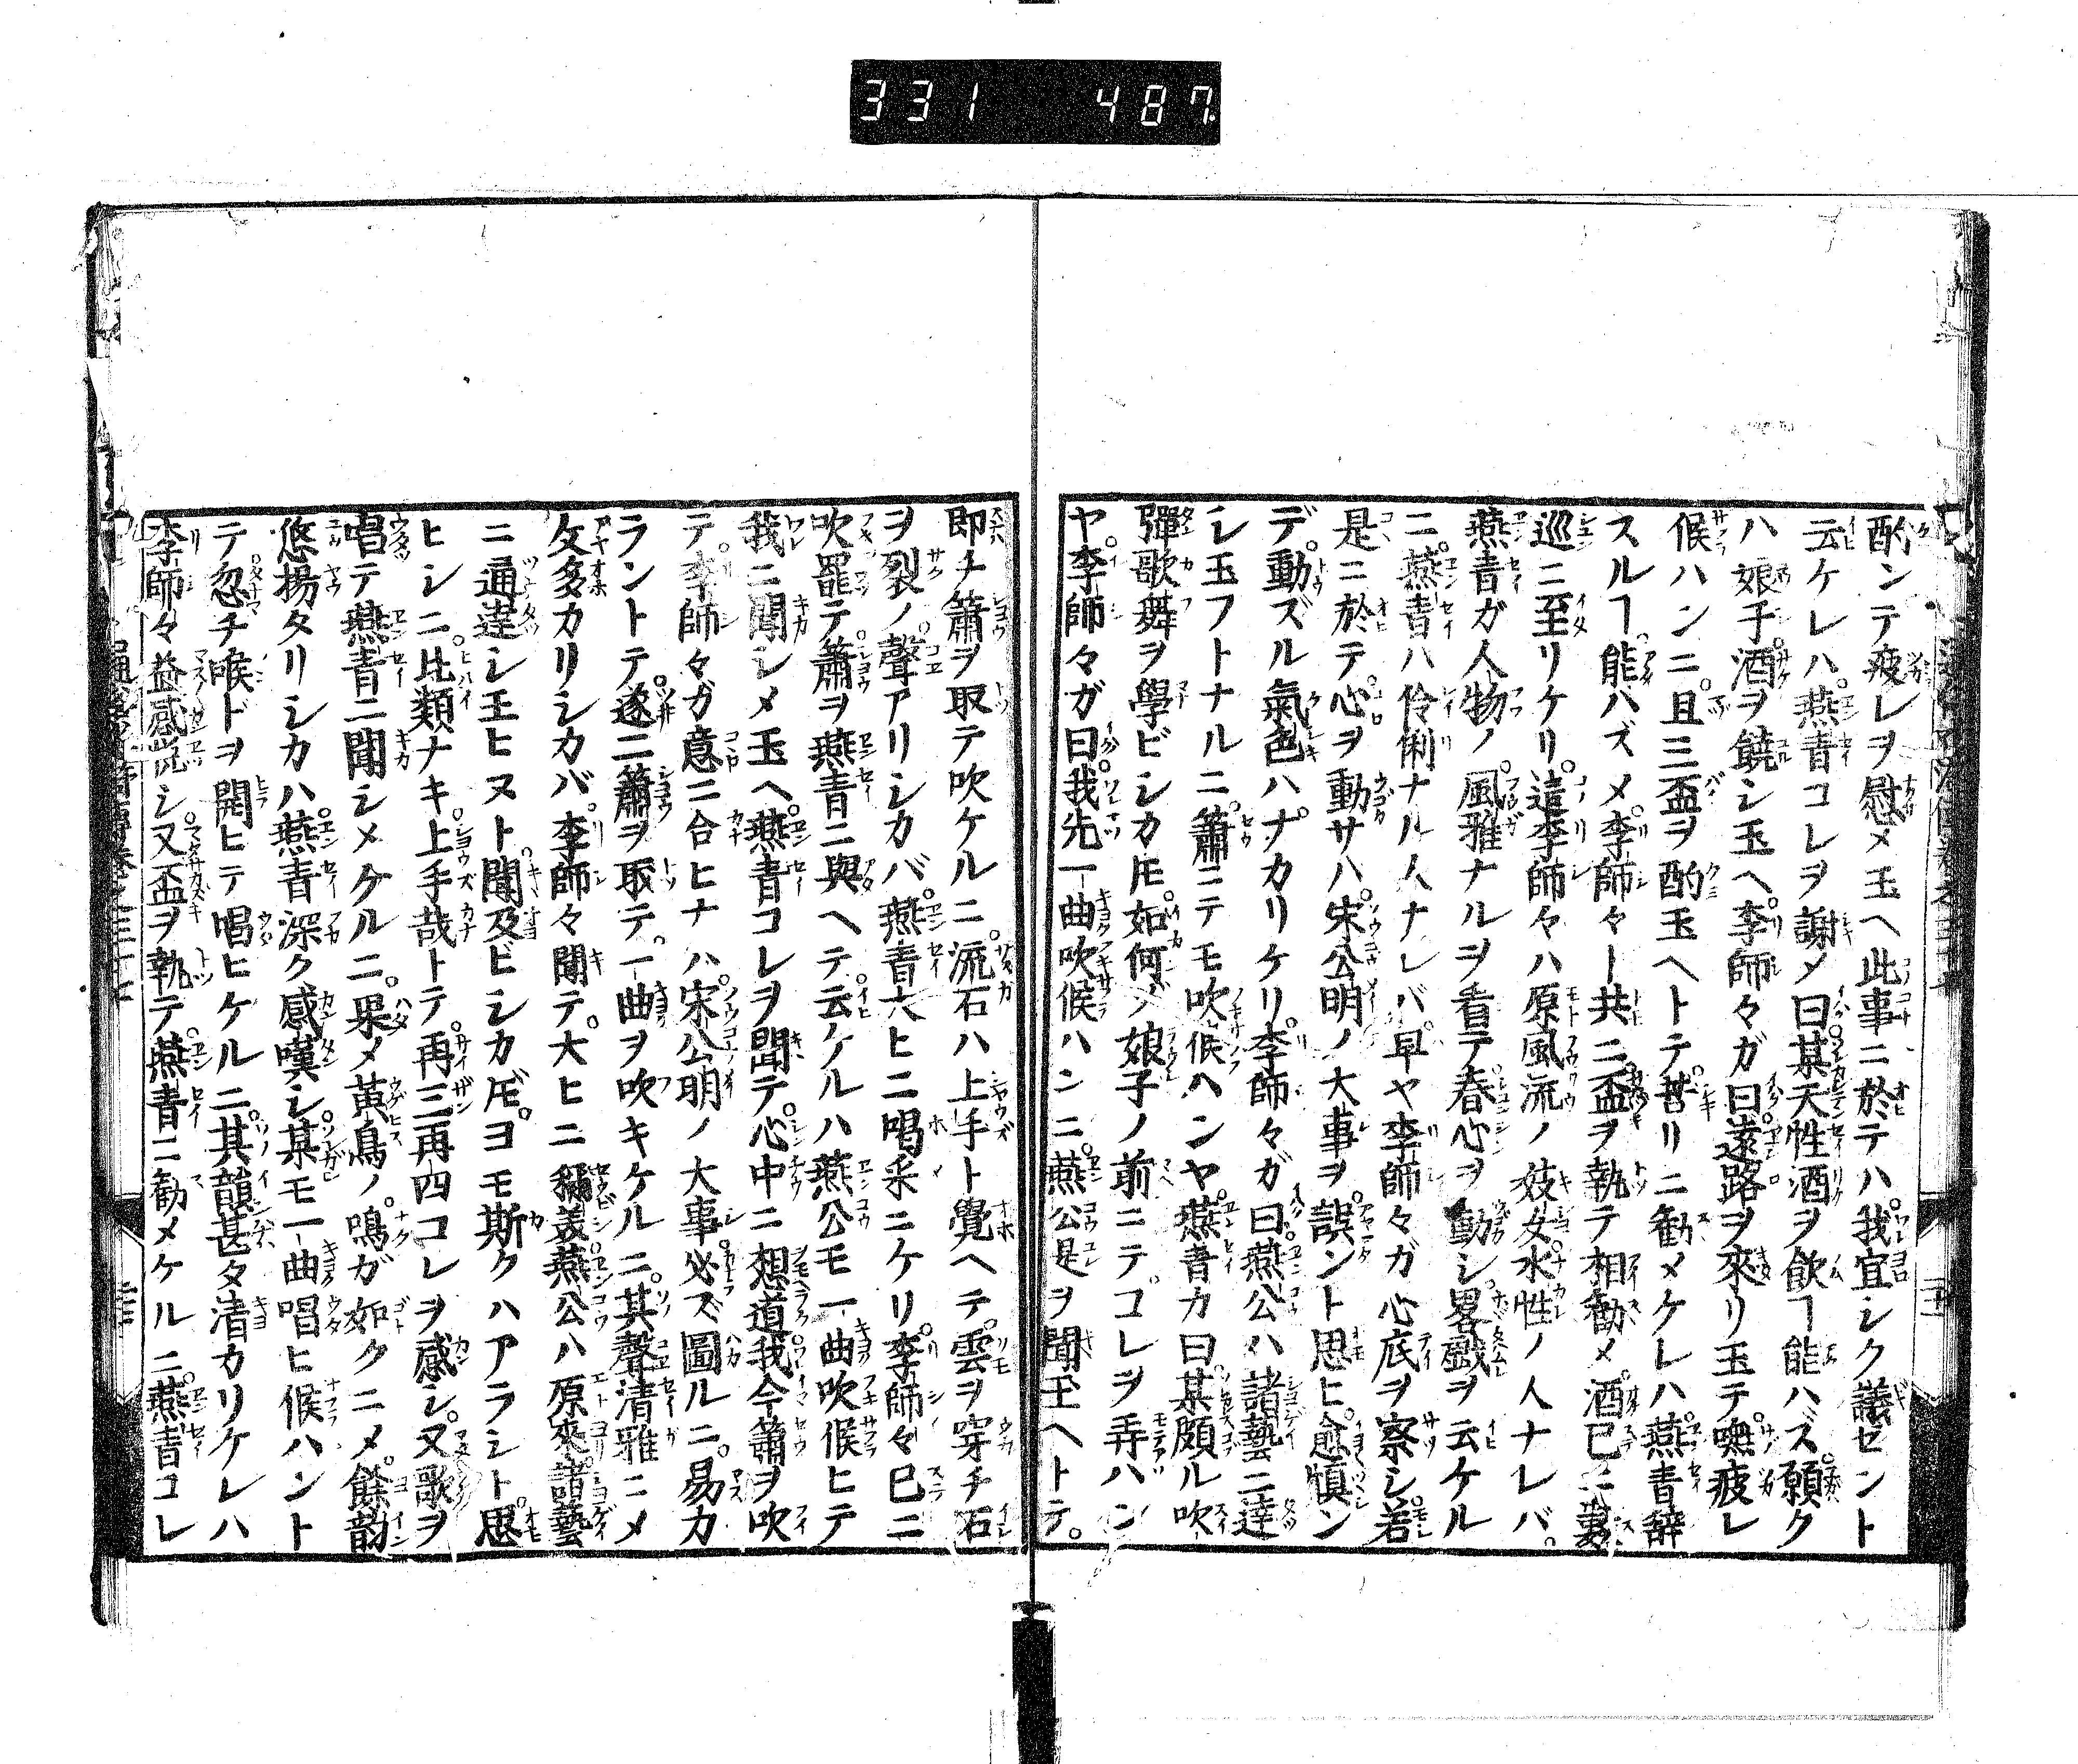 331 487
酌ンテ疲レヲ慰メ玉ヘ此事ニ於テハ我宜シク議セント
云ケレハ燕青コレヲ謝メ曰某天性酒ヲ飲ヿ能ハズ願ク
ハ娘子酒ヲ饒シ玉ヘ李師々ガ曰遠路ヲ來リ玉テ嘸疲レ
候ハンニ且三盃ヲ酌玉ヘトテ苦リニ勸メケレハ燕青辞
スルヿ能ハズメ李師々ト共ニ盃ヲ執テ相勸メ酒已ニ数
巡ニ至リケリ這李師々ハ原風流ノ妓女水性ノ人ナレバ
燕青ガ人物ノ風雅ナルヲ看テ春心ヲ動シ畧戯ヲ云ケル
ニ燕青ハ伶俐ナル人ナレバ早ヤ李師々ガ心底ヲ察シ若
是ニ於テ心ヲ動サハ宋公明ノ大事ヲ誤ント思ヒ愈慎ン
デ動ズル氣色ハナカリケリ李師々ガ曰燕公ハ諸藝ニ達
シ玉フトナルニ簫ニテモ吹候ヘンヤ燕青カ曰某頗ル吹
彈歌舞ヲ學ビシカ𪜈如何メ娘子ノ前ニテコレヲ弄ハン
ヤ李師々ガ曰我先一曲吹候ハンニ燕公是ヲ聞玉ヘトテ
即チ簫ヲ取テ吹ケルニ流石ハ上手ト覺ヘテ雲ヲ穿チ石
ヲ裂ノ聲アリシカバ燕青大ヒニ喝采ニケリ李師々已ニ
吹罷テ簫ヲ燕青ニ與ヘテ云ケルハ燕公モ一曲吹候ヒテ
我ニ聞シメ玉ヘ燕青コレヲ聞テ心中ニ想道我今簫ヲ吹
テ李師々ガ意ニ合ヒナハ宋公明ノ大事必ズ圖ルニ易カ
ラントテ遂ニ簫ヲ取テ一曲ヲ吹キケルニ其聲清雅ニメ
攵多カリシカバ李師々聞テ大ヒニ稱美燕公ハ原來諸藝
ニ通達シ玉ヒヌト聞及ビシカ𪜈ヨモ斯クハアラシト思
ヒシニ比類ナキ上手哉トテ再三再四コレヲ感シ又歌ヲ
唱テ燕青ニ聞シメケルニ果メ黄鳥ノ鳴ガ如クニメ餘韵
悠揚タリシカハ燕青深ク感嘆シ某モ一曲唱ヒ候ハント
テ忽チ喉ドヲ開ヒテ唱ヒケルニ其韻甚タ清カリケレハ
李師々益感悦シ又盃ヲ執テ燕青ニ勸メケルニ燕青コレ